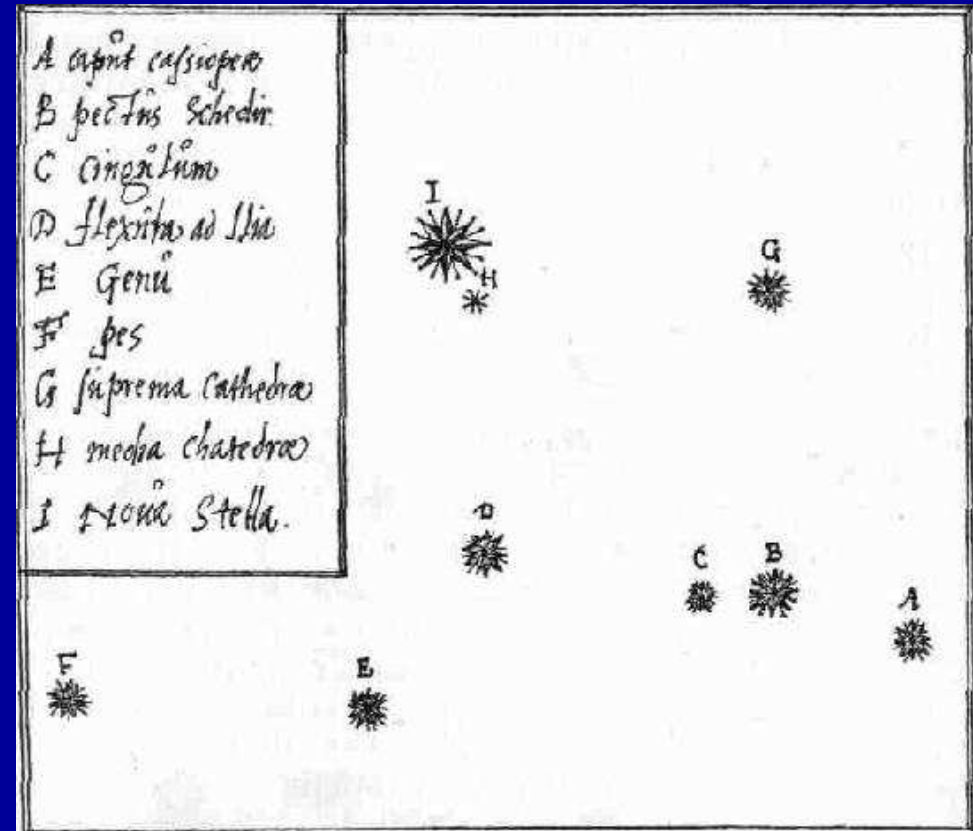 A caput cassiopeæ
B pectus Schedir.
C Cingulum
D flexura ad Ilia
E Genu
F pes
G suprema Cathedræ
H media Chatedræ
I Nova Stella.
I
H
G
D
C
B
A
F
E